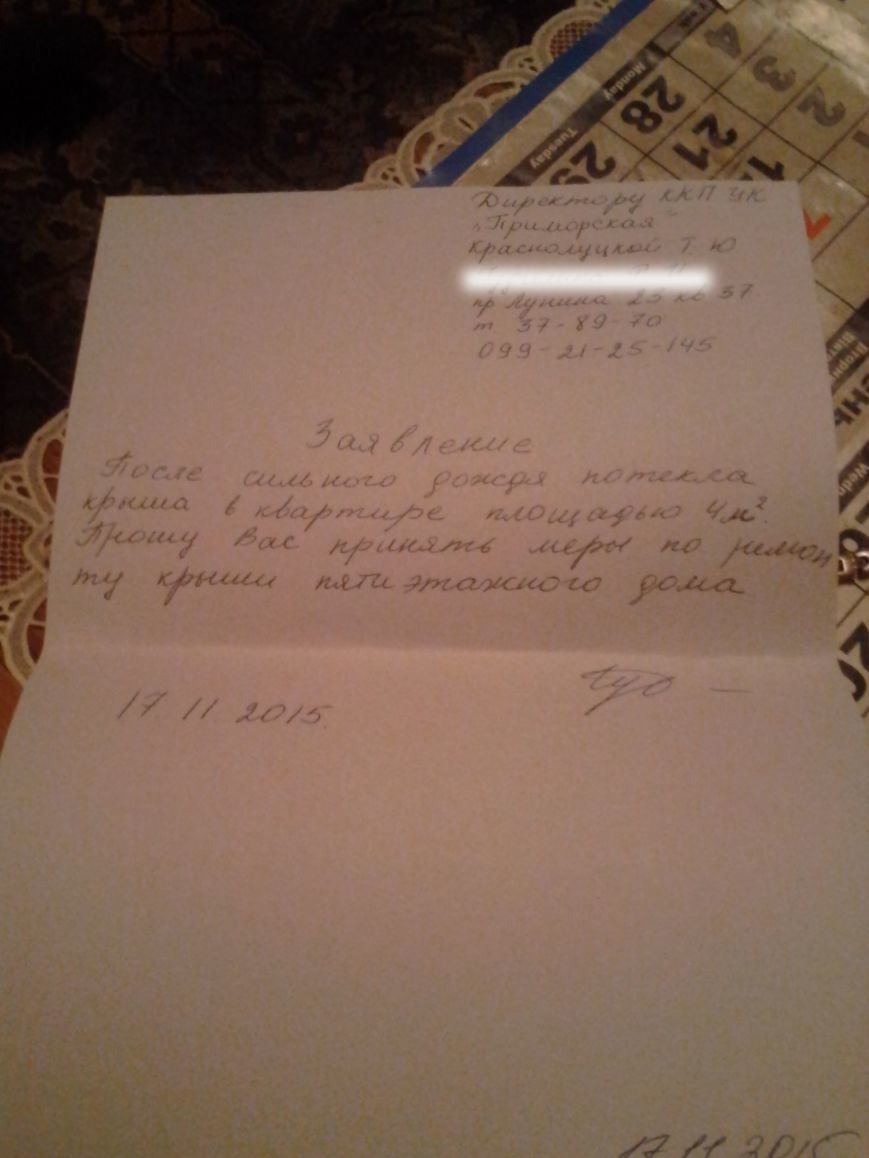 Директору ККП УК
"Приморская"
Краснолуцкой Т. Ю
пр Лунина 23 кв 37
т 37-89-70
099-21-25-145
Заявление
После сильного дождя потекла
крыша в квартире площадью 4м².
Прошу Вас принять меры по ремон
ту крыши пятиэтажного дома
17 11 2015.
17.11.2015
4
3
2
1
Monday
28
21
Tuesday
29